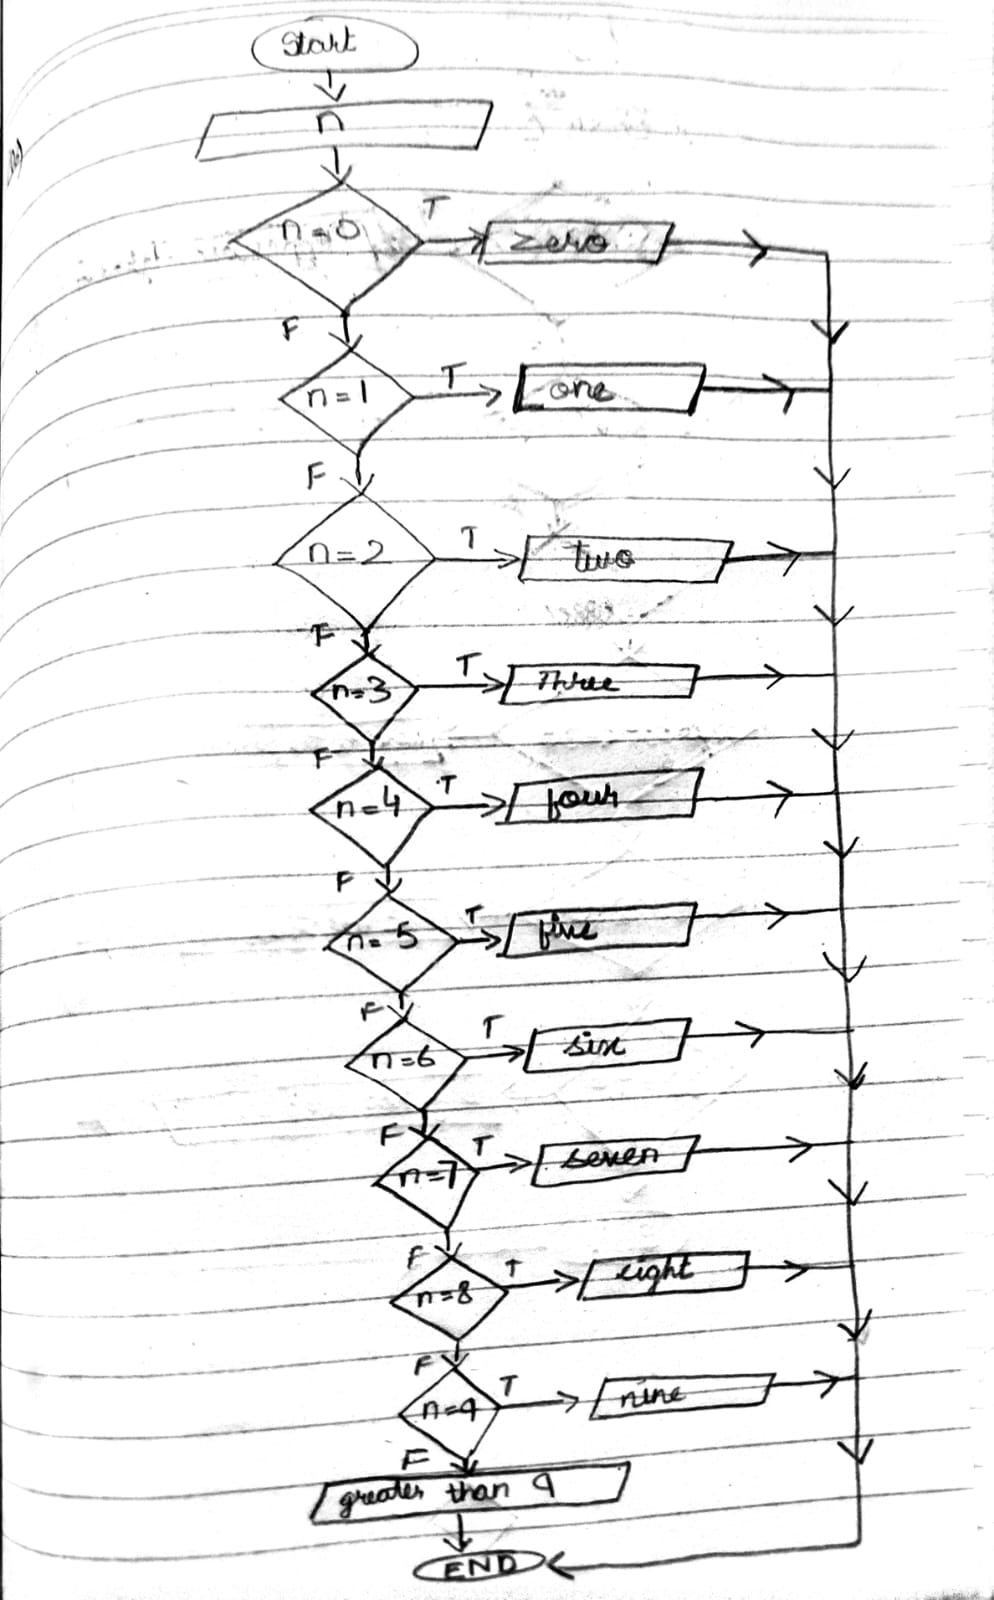 Start
n
n=0 T zero
F
n=1 T one
F
n=2 T two
F
n=3 T Three
F
n=4 T four
F
n=5 T five
F
n=6 T six
F
n=7 T seven
F
n=8 T eight
F
n=9 T nine
F
greater than 9
END